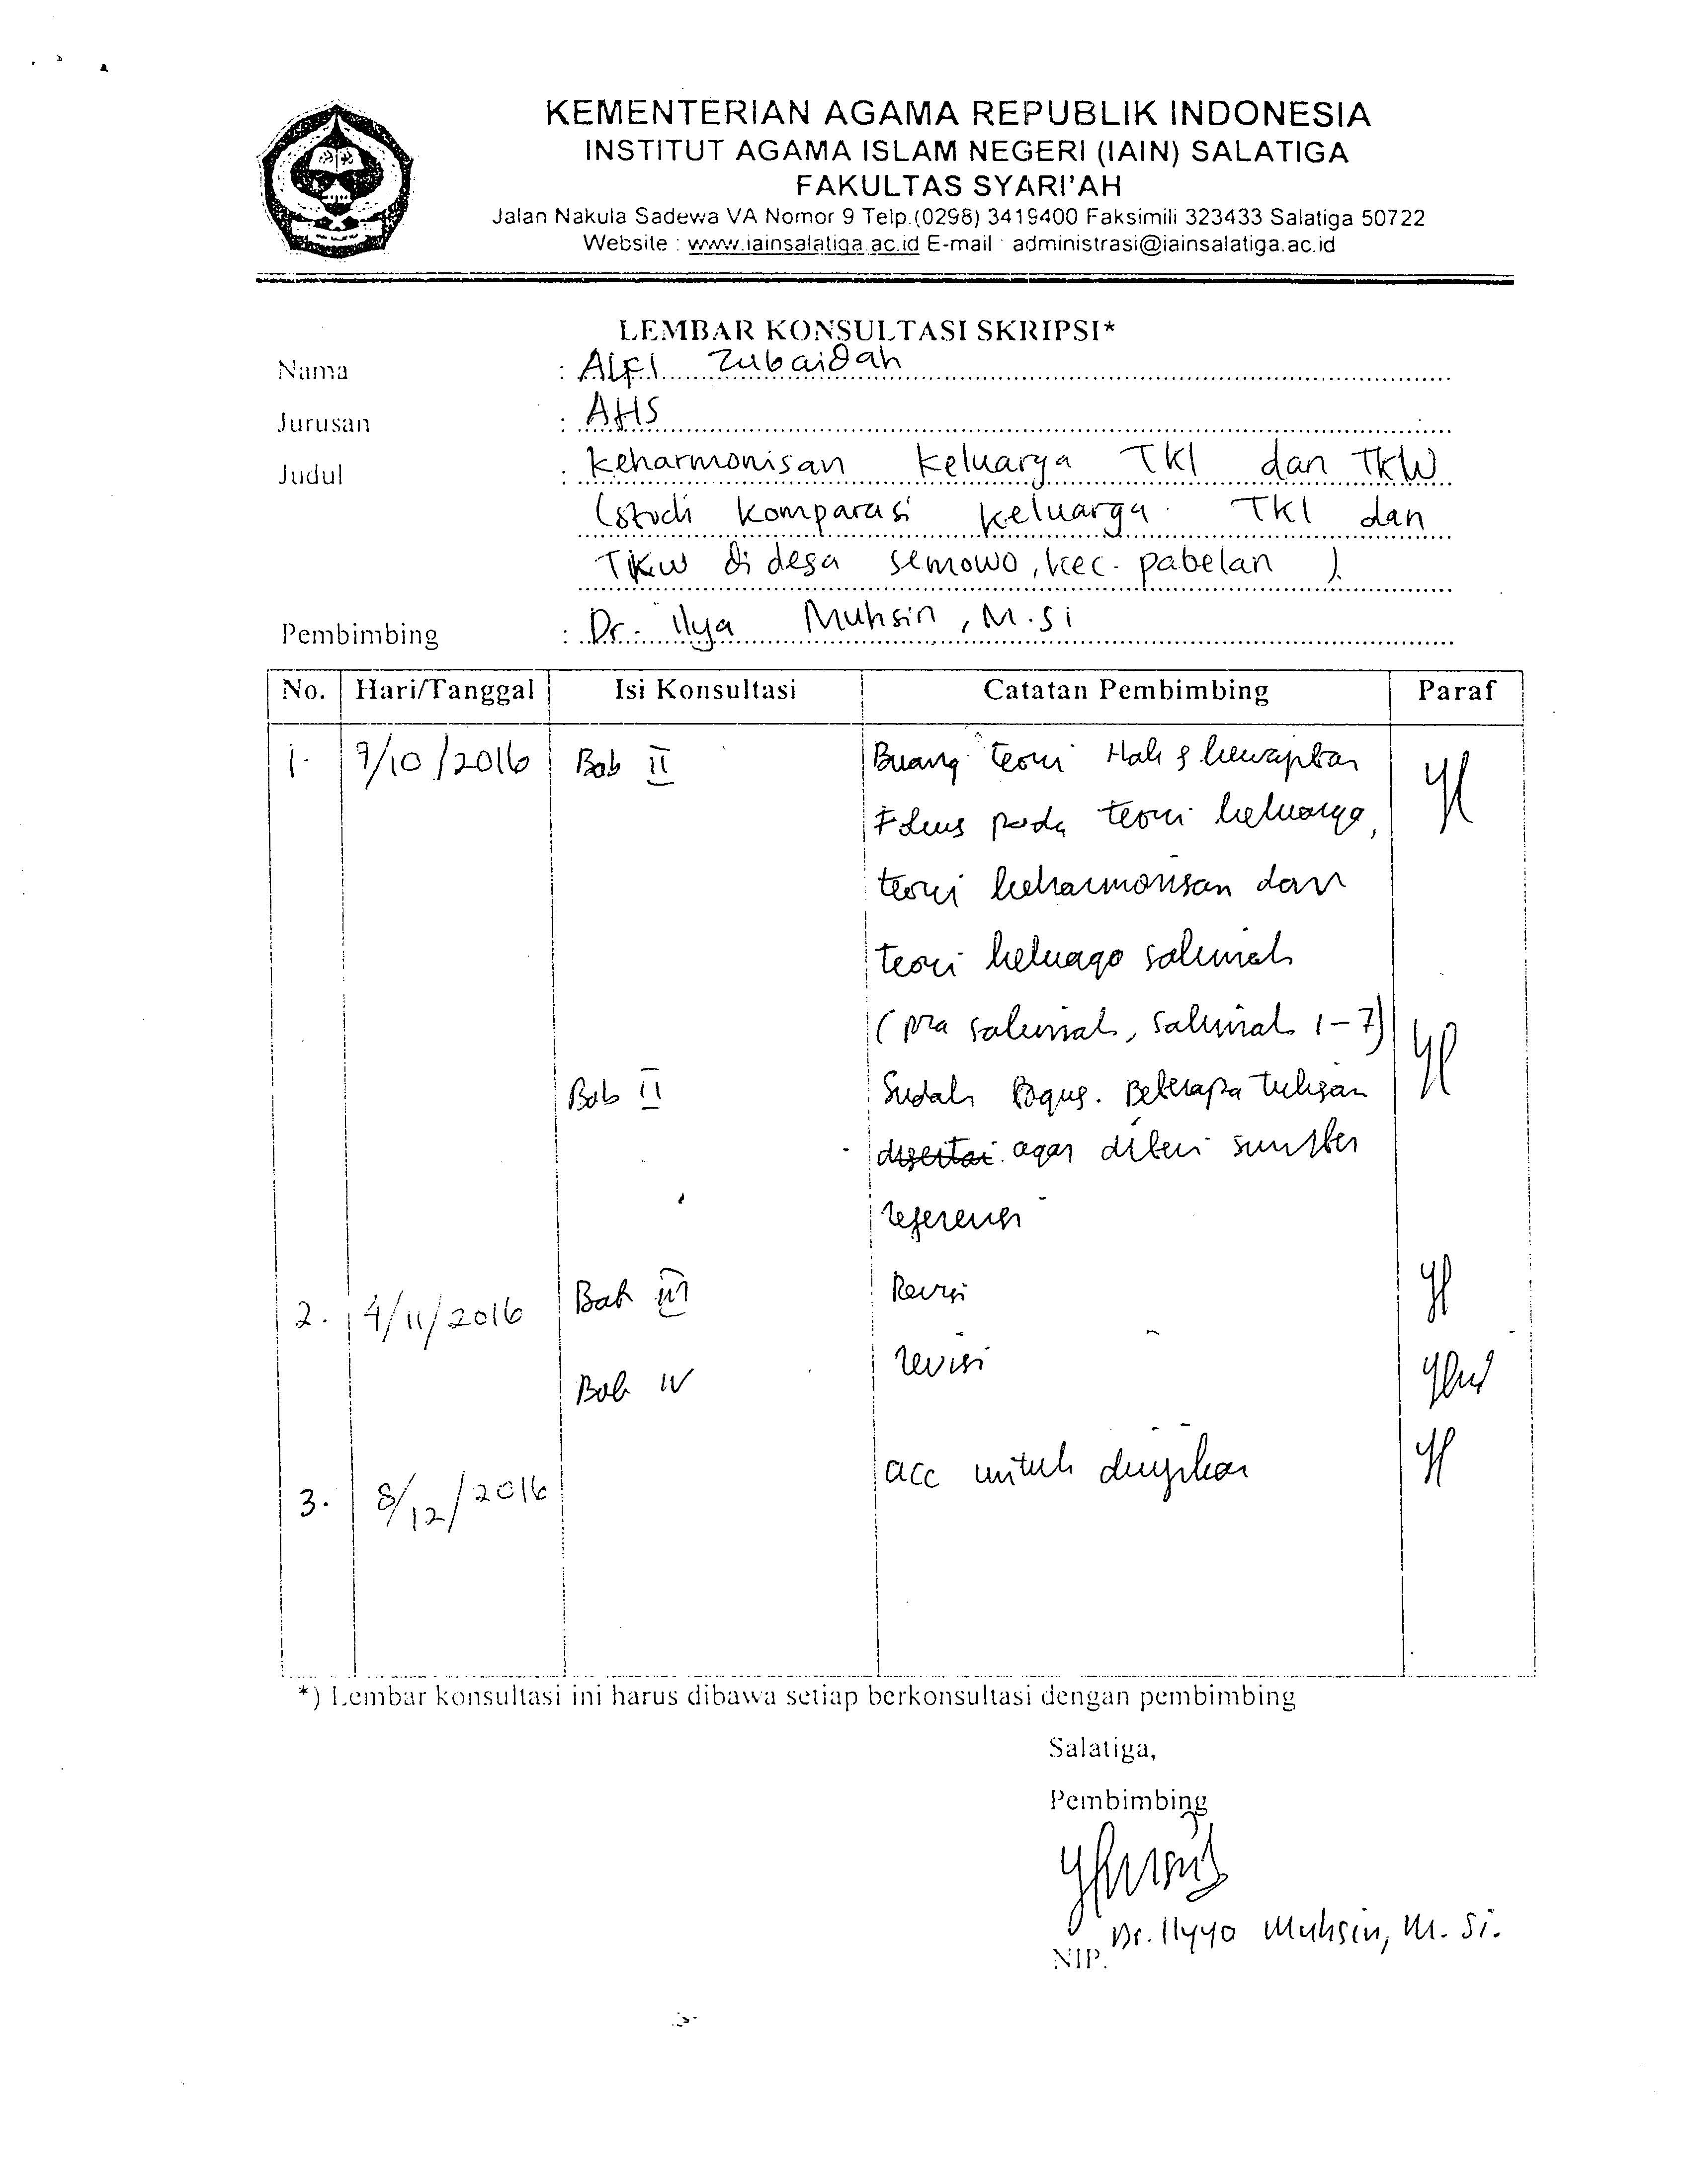 KEMENTERIAN AGAMA REPUBLIK INDONESIA
INSTITUT AGAMA ISLAM NEGERI (IAIN) SALATIGA
FAKULTAS SYARI'AH
Jalan Nakula Sadewa VA Nomor 9 Telp.(0298) 3419400 Faksimili 323433 Salatiga 50722
Website : www.iainsalatiga.ac.id E-mail : administrasi@iainsalatiga.ac.id
LEMBAR KONSULTASI SKRIPSI*
Nama : ALFI Zubaidah
Jurusan : AHS
Judul : keharmonisan keluarga TKI dan TKW
(studi komparasi keluarga TKI dan
TKW di desa semowo, kec. pabelan ).
Pembimbing : Dr. ilya Muhsin, M.Si
No. Hari/Tanggal Isi Konsultasi Catatan Pembimbing Paraf
1. /10/2016 Bab II Buang teori Hak & kewajiban
Fokus pada teori keluarga,
teori keharmonisan dan
teori keluarga sakinah
(pra sakinah, sakinah 1-7)
Bab II Sudah Bagus. Beberapa tulisan
disertai agar diberi sumber
referensi
2. 4/11/2016 Bab III Revisi
Bab IV revisi
3. 8/12/2016 acc untuk diujikan
*) Lembar konsultasi ini harus dibawa setiap berkonsultasi dengan pembimbing
Salatiga,
Pembimbing
Dr. Ilyya Muhsin, M. Si.
NIP.